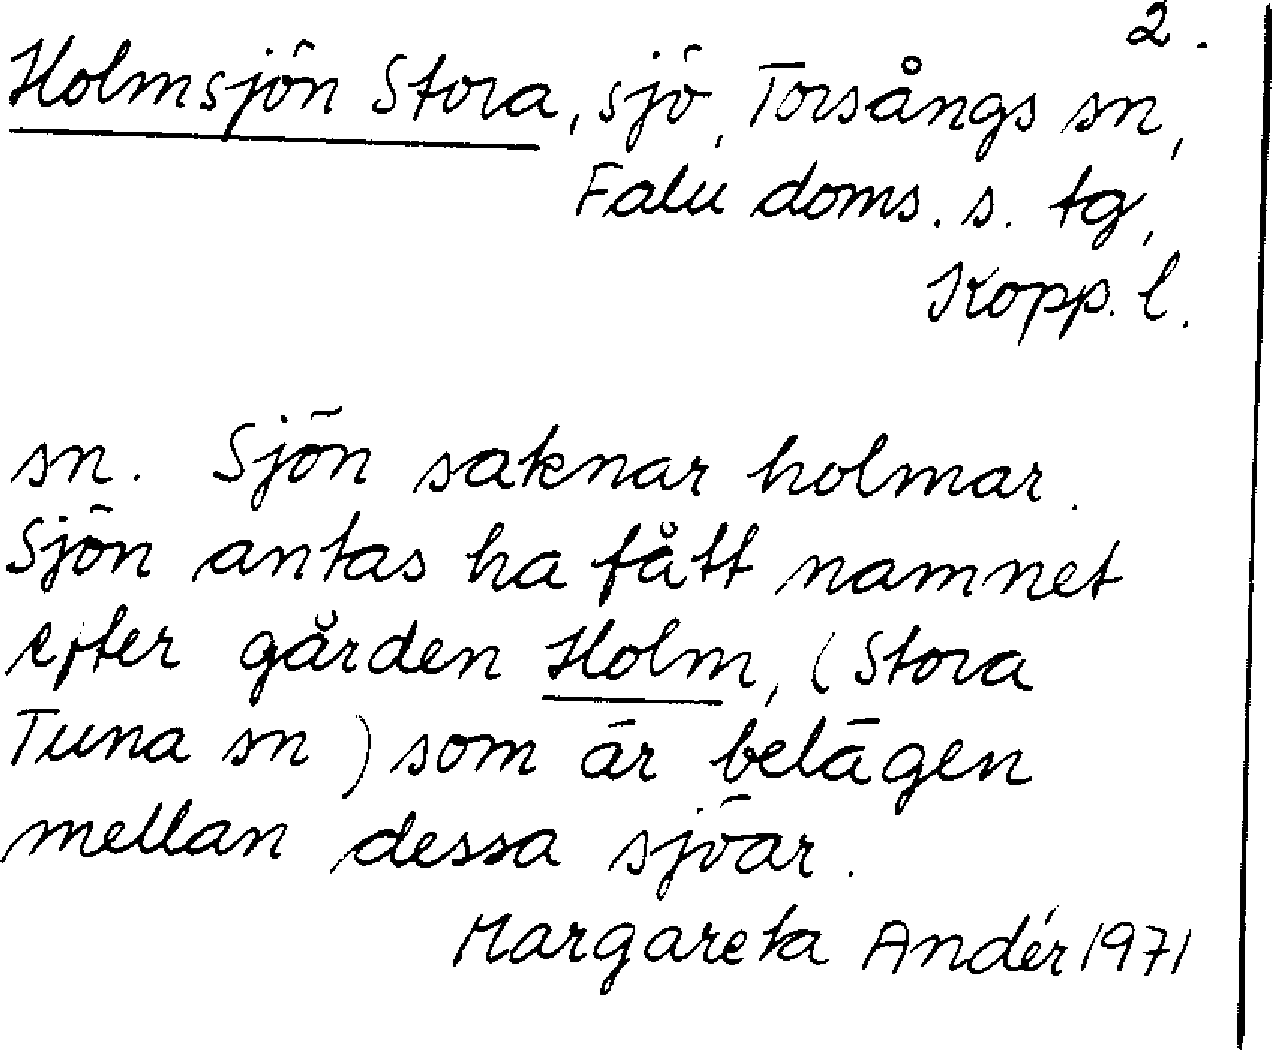 2.
Holmsjön Stora, sjö, Torsångs sn,
Falu doms. s. tg,
Kopp. l.
sn. Sjön saknar holmar.
Sjön antas ha fått namnet
efter gården Holm, (Stora
Tuna sn) som är belägen
mellan dessa sjöar.
Margareta Andér 1971